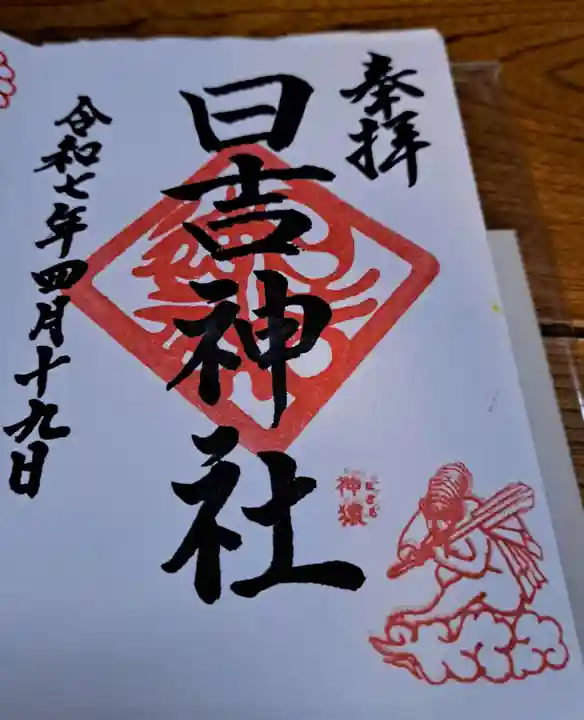 奉拝
日吉神社
神猿
まさる
令和七年四月十九日